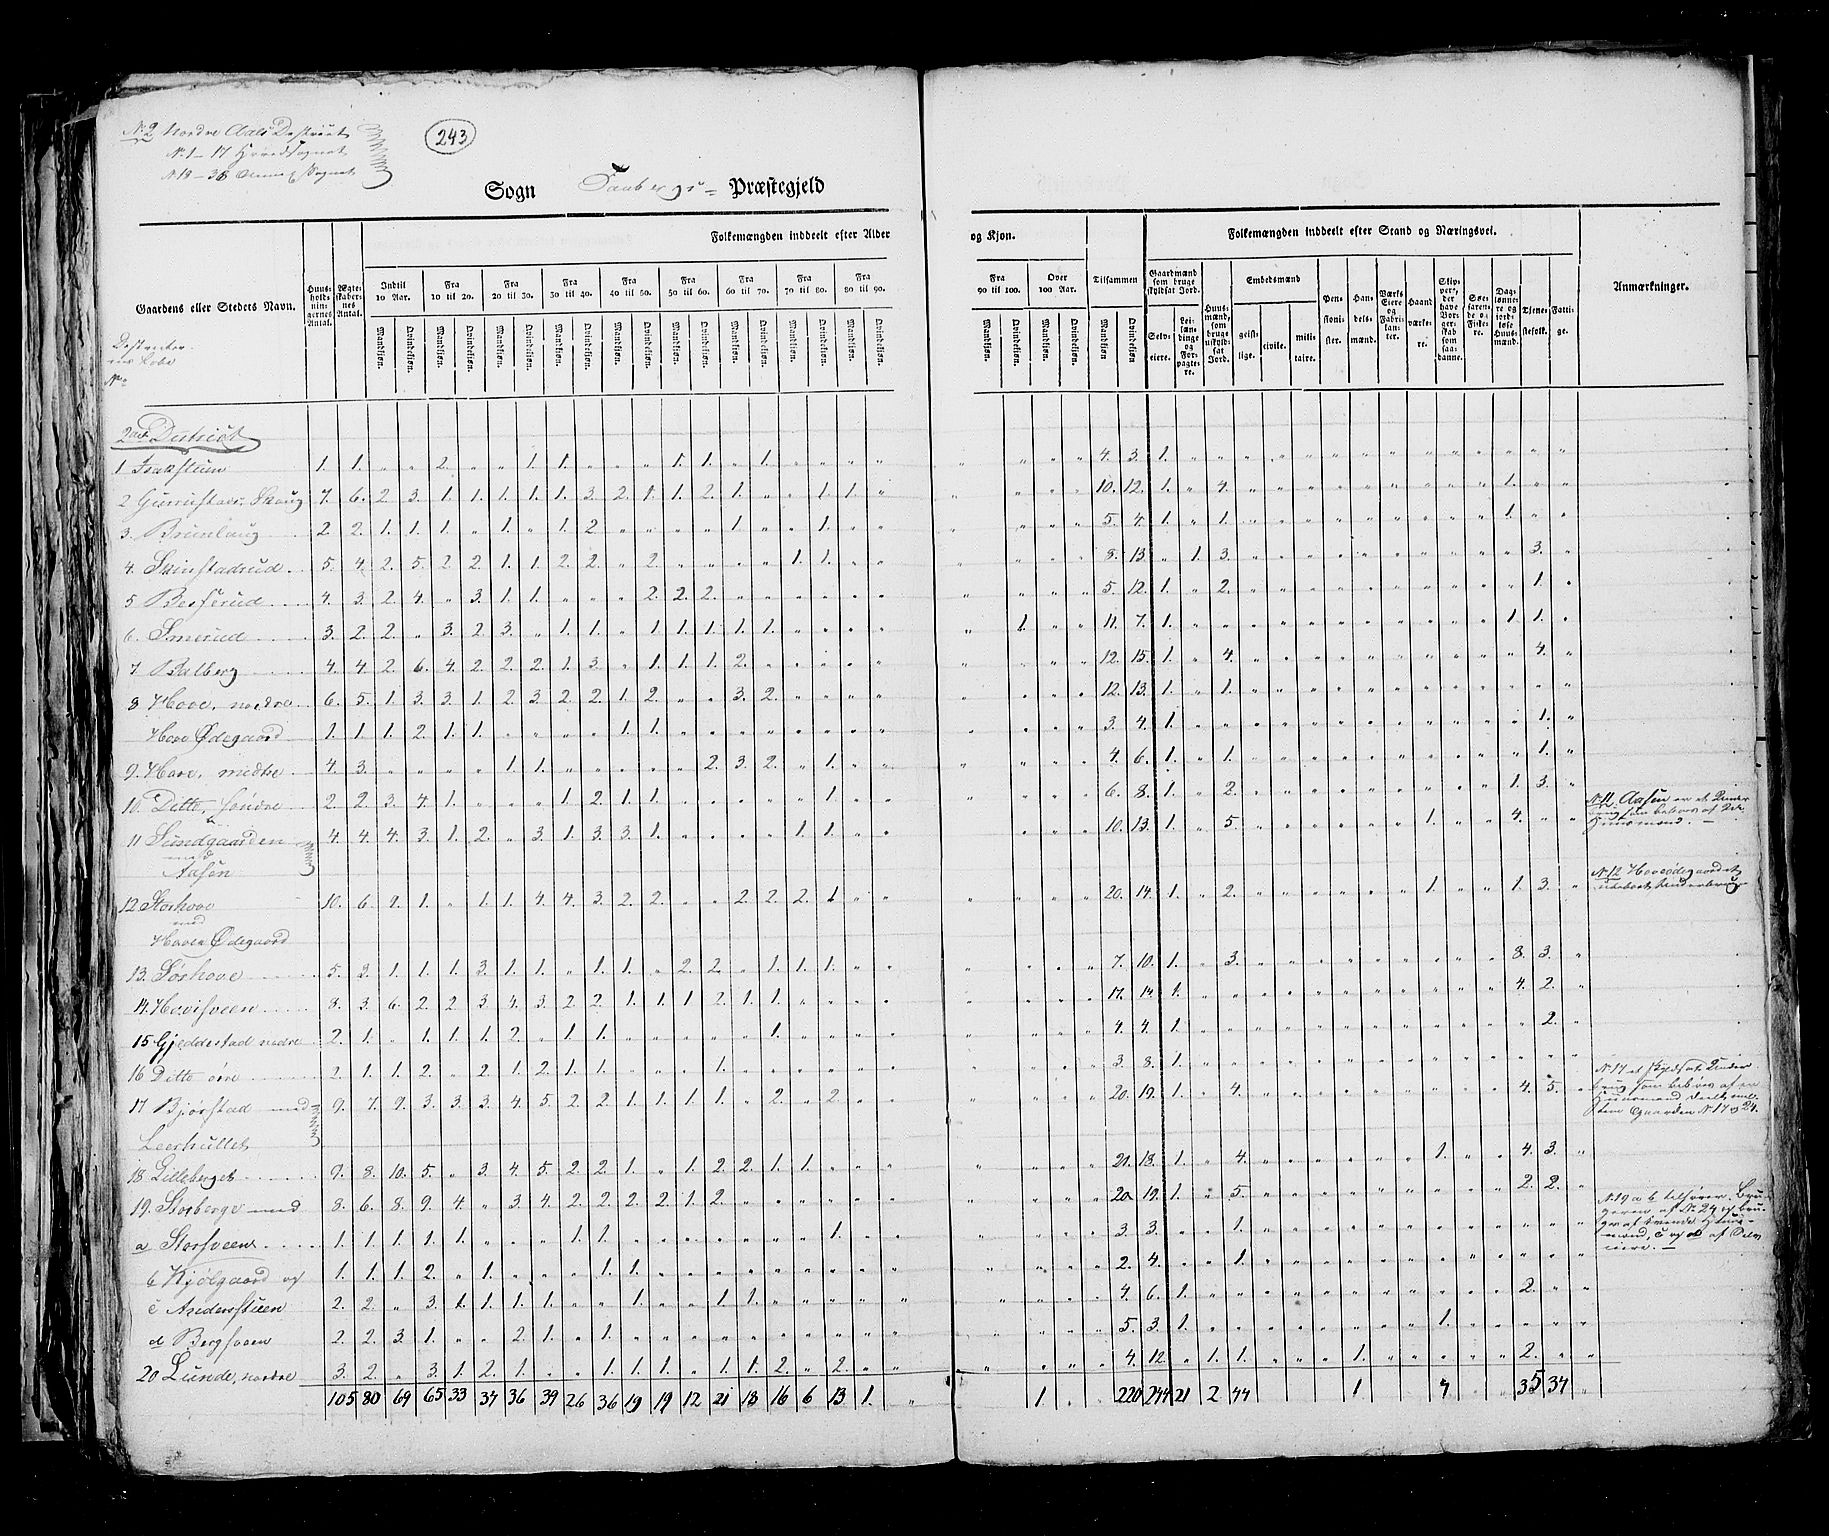 No. 2 Nordre Aals District
No. 1 – 17 Hovedsognet
No. 18 – 36 Sognet
243
Sogn Faabergs Præstegjeld
Folkemængden inddeelt efter Alder og Kjøn.
Folkemængden inddeelt efter Stand og Næringsvei.
Gaardens eller Stedets Navn.
Huusholdningernes Antal.
Ægteskabernes Antal.
Indtil 10 Aar.
Fra 10 til 20.
Fra 20 til 30.
Fra 30 til 40.
Fra 40 til 50.
Fra 50 til 60.
Fra 60 til 70.
Fra 70 til 80.
Fra 80 til 90.
Fra 90 til 100.
Over 100 Aar.
Tilsammen
Mandkjøn. Qvindekjøn.
Gaardmænd som bruge skyldsat Jord.
Selveiere.
Leilændinge og Forpagtere.
Huusmænd, som bruge uskyldsat Jord.
Embedsmænd
geistlige.
civile.
militaire.
Pensionister.
Handelsmænd.
Værks Eiere og Fabrikanter.
Haandværkere.
Søefarende og Fiskere.
Tjenestefolk.
Fattige.
Anmærkninger.
2det District
1 1. 1. „ „ 2. „ „ 1. 1. „ „ „ 1. 1. „ 1. „ „ „ „ 4. 3. 1.
2 Skoug 7. 6. 2. 3. 1. 1. 1. 1. 1. 3. 2. 1. 1. 2. 1. „ „ 1. 1. „ 10. 12. 1. „ 4. 1.
3. Brunlaug 2. 2. 1. 1. 1. „ 1. „ 1. 2 „ „ „ „ 1. „ „ 1. „ „ 5. 4. 1. „ 1. 1.
4. Skinstadrud 5. 4. 2. 5. 2. 2. 1. 1. 2. 2. „ 2. „ „ „ „ 1. 1. „ „ 8. 13. „ 1. 3. 3.
5 Besserud 4. 3. 2. 4. „ 3. 1. 1. „ „ „ 2. 2. 2. „ „ „ „ „ „ 5. 12. 1. „ 2. 1.
6. Smerud 3. 2. 2. „ 3. 2. 3. „ 1. 1. „ 1. 1. 1. 1. 1. „ „ „ „ „ 1. „ „ 11. 7. 1. 1. 1.
7 Balberg 4. 4. 2. 6. 4. 2. 2. 2. 1. 3. „ 1. 1. 1. 2. „ „ „ „ „ 12. 15. 1. „ 4. 4.
8 Hove, nordre 6. 5. 1. 3. 3. 1. 2. 3. 2. 2. 1. 2. „ „ 3. 2. „ „ „ „ 12. 13. 1. „ 1.
Hove Ødegaard 1. 1. 1. 2. 1. 1. „ „ „ „ 1. 1. „ „ „ „ „ „ „ „ 3. 4. 1. 1.
9. Hove, midtre 4. 3. „ „ „ „ 1. 1. „ „ „ „ „ 2. 3. 2. „ 1. „ „ 4. 6. 1. „ 1. 1.
10. Ditto, søndre 2. 2. 3. 4. 1. „ „ „ 1. 2. 1. 1. „ „ „ „ „ 1. „ „ 6. 8. 1. „ 2. 1. 3.
11 Sundgaarden 4. 4. 4. 3. 1. 2. „ 3. 1. 3. 3. 1. „ „ „ „ 1. 1. „ „ 10. 13. 1. „ 5. 1. 4.
med
Aasen
12 Storhove 10. 6. 9. 1. „ 1. 1. 4. 4. 3. 2. 2. „ „ 2. 2. 2. 1. „ „ 20. 14. 1. „ 2. 1. 1. 3.
med
Hoven Ødegaard
13. Sørhove 5. 3. 1. 1. 1. 3. 1. 1. „ 1. 1. „ 2. 2. „ 1. 1. 1. „ „ 7. 10. 1. „ 3. 8. 3.
14. Hovisveen 8. 3. 6. 2. 2. 3. 4. 3. 2. 2. 1. 1. 1. 2. 1. 1. „ „ „ „ 17. 14. 1. 4. 2.
15 Gjeddestad nedre 2. 1. „ 1. 1. 1. 2. „ 1. 1. „ „ „ „ „ 1. „ „ „ „ 4. 4. 1. 2.
16 Ditto øvre 2. 1. 1. 2. „ 2. 1. 2. 1. 1. „ „ „ 1. „ „ „ „ „ „ 3 8. 1.
17 Bjørstad med 9. 7. 9. 3. 3. 3. 4. 5. 2. 2. 1. 1. 1. 1. „ 2. „ 2. „ „ 20. 19. 1. „ 4. 4. 5.
Leerhullet
18 Lilleberget 9. 8. 10. 5. „ 3. 4. 5. 2. 2. 1. „ 1. 2. 2. 1. 1. „ „ „ 21. 18. 1. „ 4. 1. 4. 3.
19. Storberge med 8. 6. 8. 9. 4. „ 3. 4. 2. 2. 2. 2. 1. 2. „ „ „ „ „ „ 20 19. 1. „ 5. 2. 2.
a Storsveen 1. 1. 1. 1. 1. „ „ „ 1. 1. „ „ „ „ „ „ „ 1. „ „ 3. 3. „ „ 1.
b Kjølgaard og 1. 1. 1. 2. „ 1. „ „ „ 1. 1. „ „ „ „ „ „ „ „ „ 2. 4. „ „ 1.
c Andersstuen 2. 2. „ 3. 1. 1. 1. 1. „ „ 1. „ „ 1. 1. „ „ „ „ „ 4. 6. 1. 2.
d Bergsveen 2. 2. 3. 1. „ „ 2. 1. „ 1. „ „ „ „ „ „ „ „ „ „ 5. 3. 1. 1.
20 Lunde, nordre 3. 2. „ 3. 1. 2. 1. „ „ 1. 1. 1. „ 1. 1. 2. „ 2. „ „ 4. 12. „ 1. 1. 1. 2.
105 80 69 65 33 37 36 39 26 36 19 19 12 21 18 16 6 13 1. „ 1 220 244 21 2 44 1 7 35 37
No. 11 Aasen er et Underbrug som bebos af Huusmænd. –
No. 12 Hoveødegaard et Underbrug
No. 17 et skyldsat Underbrug som bebos af en Huusmand
Gaarden No. 17 og 24.
No. 19 a b tilhører